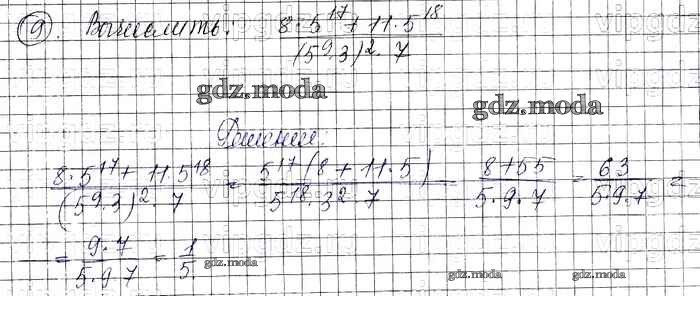 9. Вычислить: (8·5^17 + 11·5^18) / ((5^9·3)^2·7)
gdz.moda
gdz.moda
Решение:
(8·5^17 + 11·5^18) / ((5^9·3)^2·7) = 5^17(8 + 11·5) / (5^18·3^2·7) = (8+55) / (5·9·7) = 63 / (5·9·7) =
= (9·7) / (5·9·7) = 1/5
gdz.moda
gdz.moda
gdz.moda